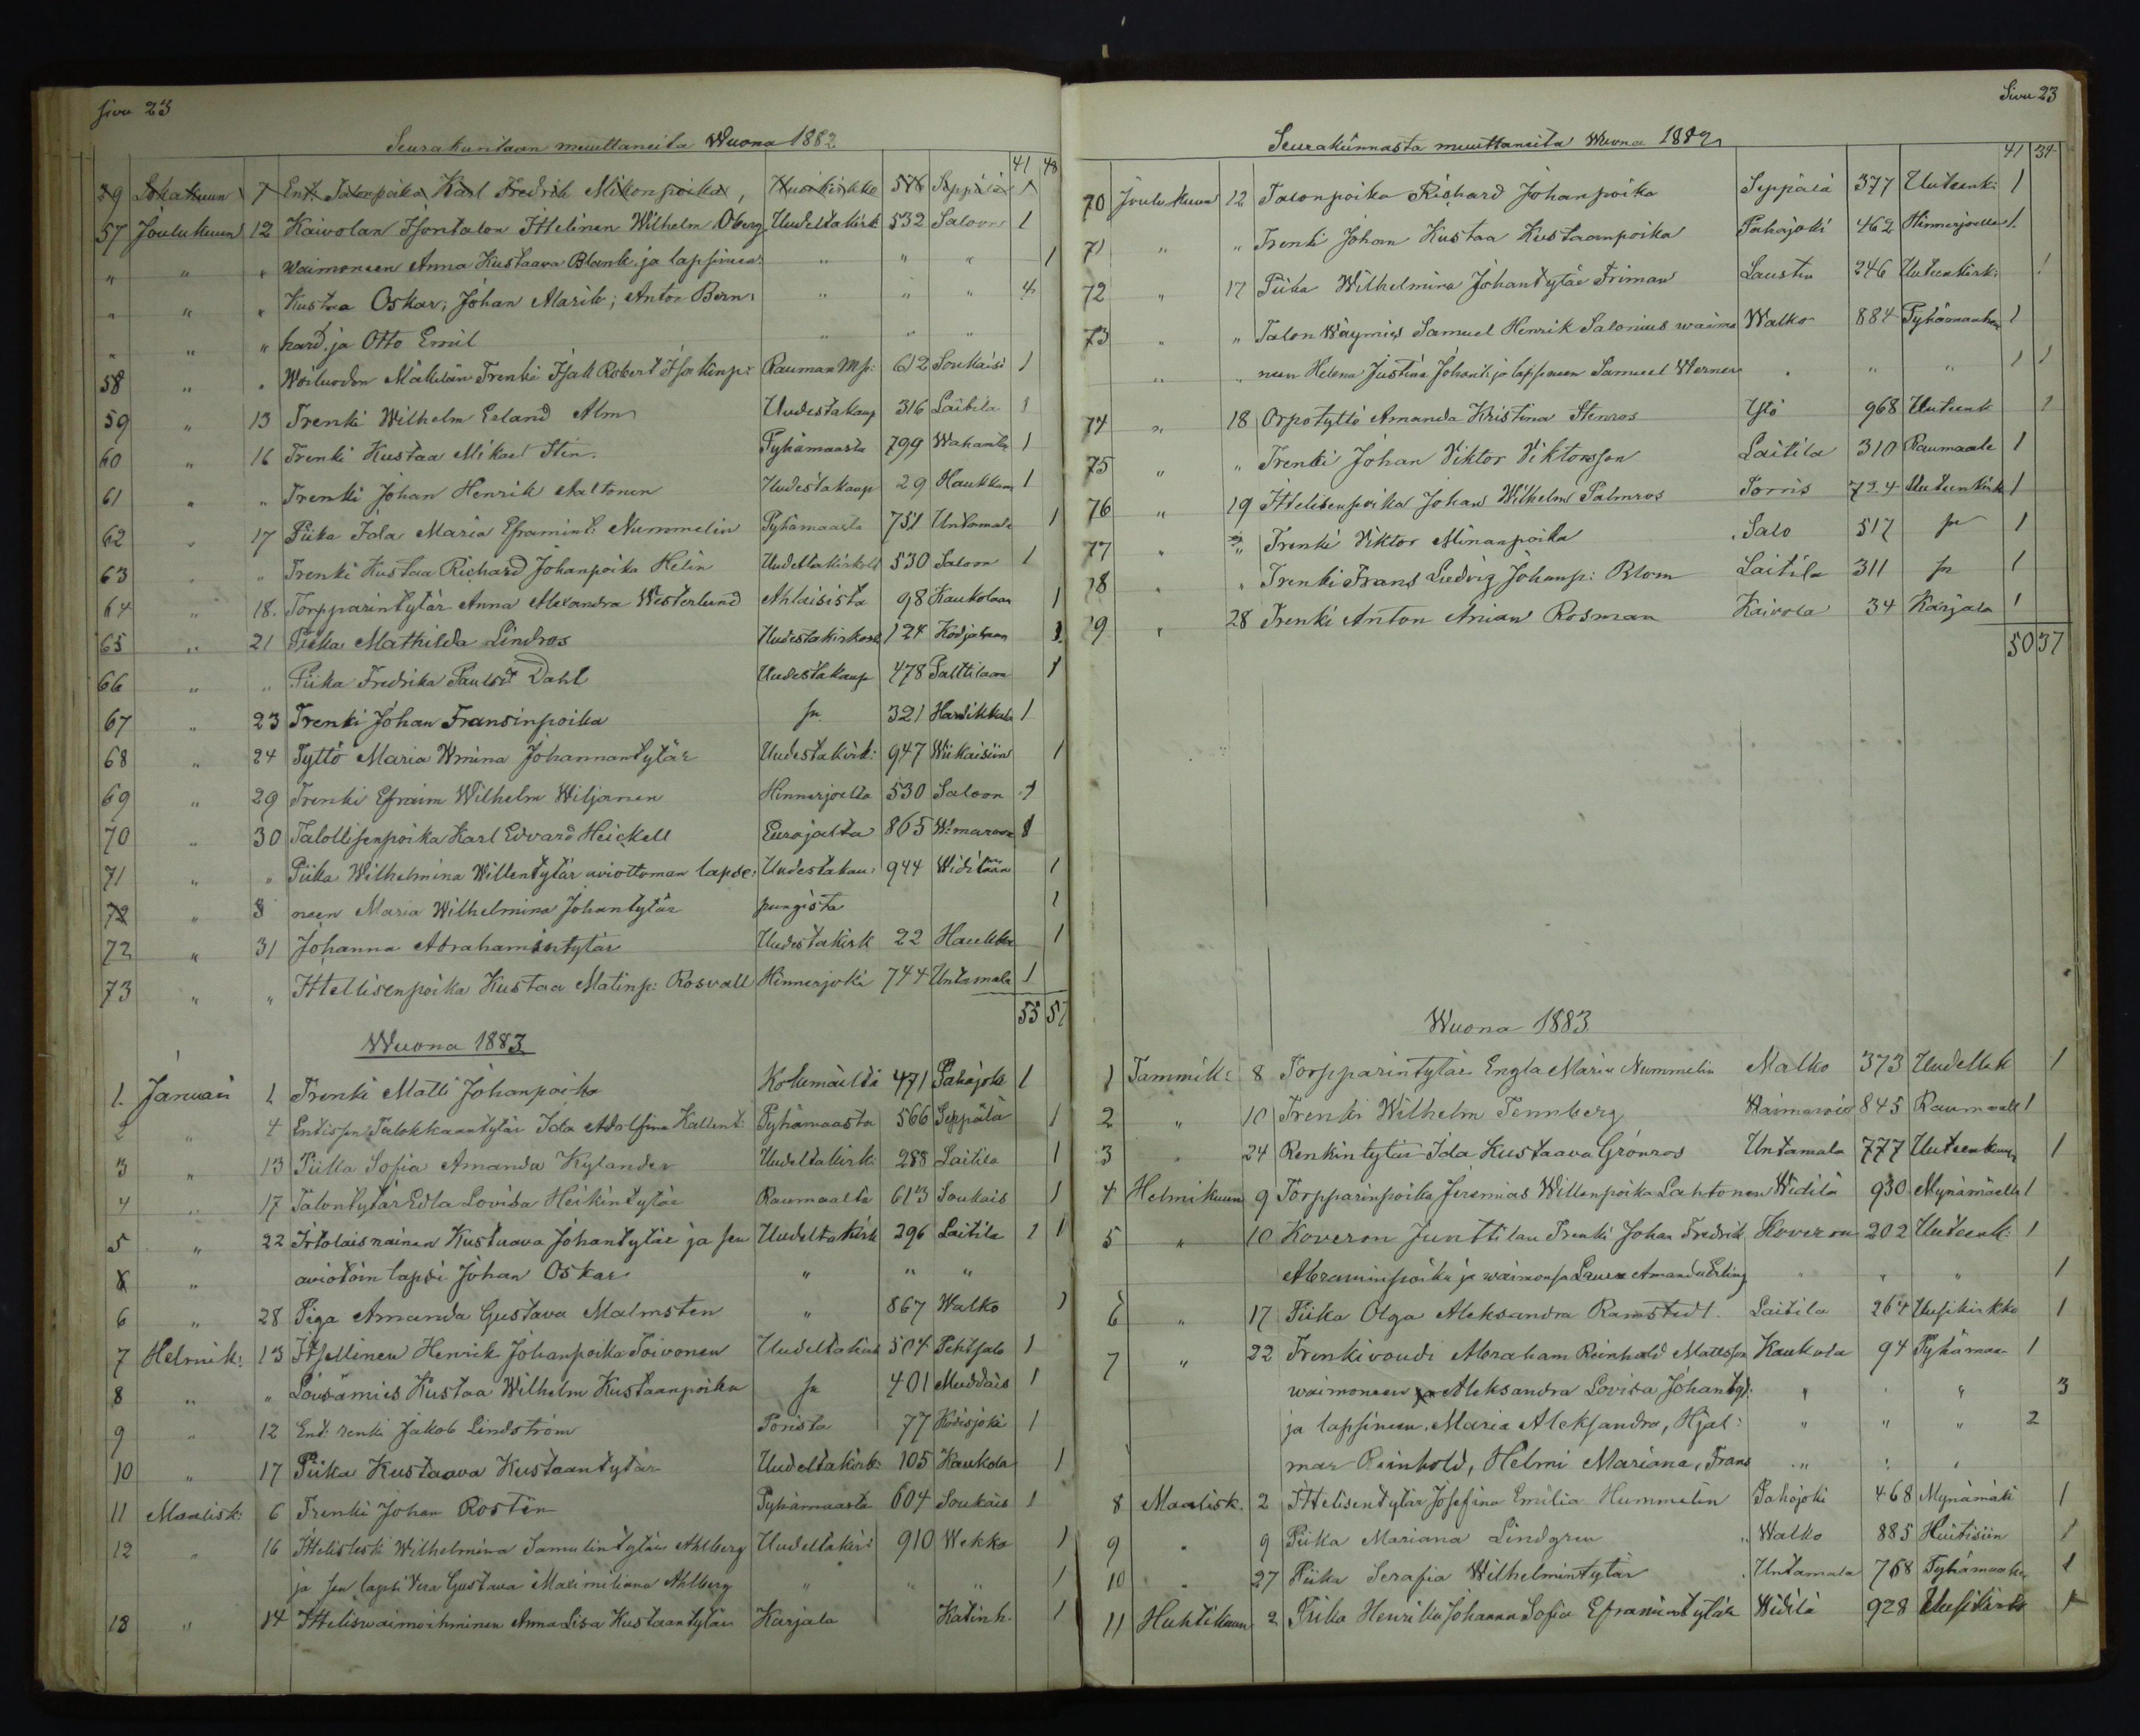 Sivu 23
Seurakuntaan muuttaneita Wuona 1882
41 48
59 Lokakuun 7 Ent. Talonpoika Karl Fredrik Mikonpoika, Uusikirkko 578 Seppälä 1
57 Joulukuun 12 Kaivolan Isontalon Ittelinen Wilhelm Öberg Uudeltakirk 532 Saloon 1
" " " Waimoneen Anna Kustaava Blank. ja lapsineen " " " 1
" " " Kustaa Oskar; Johan Marik; Anton Bern: " " " 4
" " " hard. ja Otto Emil " " "
58 " " Mäkilän Trenki Isak Robert Isakinp: Rauman Mp: 612 Soukaisi 1
59 " 13 Trenki Wilhelm Erland Alm Uudestakaup 316 Laitila 1
60 " 16 Trenki Kustaa Mikael Stén. Pyhämaasta 799 Wahanta 1
61 " " Trenki Johan Henrik Aaltonen Uudestakaup 29 Haukkaan 1
62 " 17 Piika Ida Maria Eframint: Nummelin Pyhämaasta 751 Untamala 1
63 " " Trenki Kustaa Richard Johanpoika Helin Uudeltakirkolt 530 Saloon 1
64 " 18. Torpparintytär Anna Alexandra Westerlund Ahlaisista 98 Kaukolaan 1
65 " 21 Piika Mathilda Lindros Uudestakirkosta 124 Kodjalaan 1
66 " " Piika Fredrika Paulsd Dahl Uudestakaup 478 Palttilaan 1
67 " 23 Trenki Johan Fransinpoika sr 321 Hardikkala 1
68 " 24 Tyttö Maria Wmina Johannantytär Uudestakirk: 947 Wiikaisiin 1
69 " 29 Trenki Efraim Wilhelm Wiljanen Hinnerjoelta 530 Saloon 1
70 " 30 Talollisenpoika Karl Edvard Heickell Eurajolta 865 Wimaroon 1
71 " " Piika Wilhelmina Willentytär aviottoman lapse: Uudestakau: 944 Widilään 1
72 " 3 neen Maria Wilhelmina Johantytär pungista 1
72 " 31 Johanna Abrahamintytär Uudestakirk 22 Haukka 1
73 " " Ittellisenpoika Kustaa Matinp: Rosvall Hinnerjoki 744 Untamala 1
55 57
Wuona 1883
1. Januari 1 Trenki Matti Johanpoika Kokemäeltä 471 Pahajoki 1
2 " 4 Entisen Talokkaantytär Ida Adolfina Kallent: Pyhämaasta 566 Seppälä 1
3 " 13 Piika Sofia Amanda Kylander Uudeltakirk: 288 Laitila 1
4 " 17 Talontytär Edla Lovisa Heikintytär Raumaalta 613 Soukais 1
5 " 22 Irtolaisnainen Kustaava Johantytär ja sen Uudeltakirk 296 Laitila 1 1
6 " aviotoin lapsi Johan Oskar " " "
6 " 28 Piga Amanda Gustava Malmsten " 867 Walko 1
7 Helmik: 13 Itsellinen Henrik Johanpoika Toivonen Uudeltakirk 504 Pehtsalo 1
8 " " Loisämies Kustaa Wilhelm Kustaanpoika sr 401 Muddais 1
9 " 12 Ent: renki Jakob Lindström Porista 77 Koisjoki 1
10 " 17 Piika Kustaava Kustaantytär Uudeltakirk: 105 Kaukola 1
11 Maalisk: 6 Trenki Johan Rostén Pyhämaasta 604 Soukais 1
12 " 16 Ittelisleski Wilhelmina Samulintytär Ahlberg Uudeltakir: 910 Wekka 1
ja sen lapsi Vera Gustava Maximiliana Ahlberg " " " 1
13 " 14 Itteliswaimoihminen Anna Lisa Kustaantytär Karjala Katinh. 1
Sivu 23
Seurakunnasta muuttaneita Wuona 1882
41 34
70 Joulukuun 12 Talonpoika Richard Johanpoika Seppälä 377 Uuteenki: 1
71 " " Trenki Johan Kustaa Kustaanpoika Pahajoki 462 Hinnerjoelle 1.
72 " 17 Piika Wilhelmina Johantytär Friman Laustin 246 Uuteenkirk: 1
73 " " Talon Wäymies Samuel Henrik Salonius waimo Walko 884 Pyhämaahan 1
" " neen Helena Justina Johant: ja lapseneen Samuel Werner " " " 1 1
74 " 18 Orpotyttö Amanda Kristina Stenros Ytö 968 Uuteenk 1
75 " " Trenki Johan Viktor Viktorsson Laitila 310 Raumaale 1
76 " 19 Ittelisenpoika Johan Wilhelm Palmros Torris 724 Uuteenkirk 1
77 " " Trenki Viktor Minanpoika Salo 517 sr 1
78 " " Trenki Frans Ludvig Johanp: Blom Laitila 311 sr 1
79 " 28 Trenki Anton Arian Rosman Kaivola 34 Karjala 1
50 37
Wuona 1883
1 Tammik: 8 Torpparintytär Engla Maria Nummelin Malko 373 Uudellek 1
2 " 10 Trenki Wilhelm Tennberg Waimaro 845 Raumaalle 1
3 " 24 Renkintytär Ida Kustaava Grönros Untamala 777 Uuteenkaup 1
4 Helmikuun 9 Torpparinpoika Jeremias Willenpoika Lahtonen Widilä 930 Mynämäelle 1
5 " 10 Koveron Junttilan Trenki Johan Fredrik Koveron 202 Uuteenk: 1
Abraminpoika ja waimonsa Laura Amanda Erling " " " 1
6 " 17 Piika Olga Aleksandra Ramstedt. Laitila 264 Uusikirkko 1
7 " 22 Trenkivouti Abraham Reinhold Mattsson Kaukola 94 Pyhämaa 1
waimoneen ja Aleksandra Lovisa Johantyt: " " " 3
ja lapsineen. Maria Aleksandra, Hjal: " " " 2
mar Reinhold, Helmi Mariana, Frans " " "
8 Maalisk. 2 Ittelisentytär Josefina Emilia Hummelin Pahojoki 468 Mynämäki 1
9 " 9 Piika Mariana Lindgren Walko 885 Huitisiin 1
10 " 27 Piika Serafia Wilhelmintytär Untamala 768 Pyhämaahan 1
11 Huhtikuun 2 Piika Henrika Johanna Sofia Eframintytär Widilä 928 Uusikirko 1